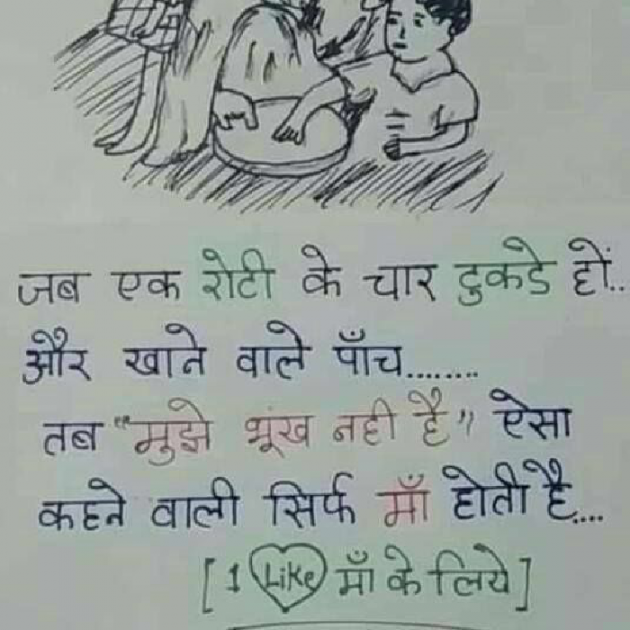 जब एक रोटी के चार टुकडे हों..
और खाने वाले पाँच........
तब "मुझे भूंख नही है" ऐसा
कहने वाली सिर्फ माँ होती है....
[1 Like माँ के लिये]